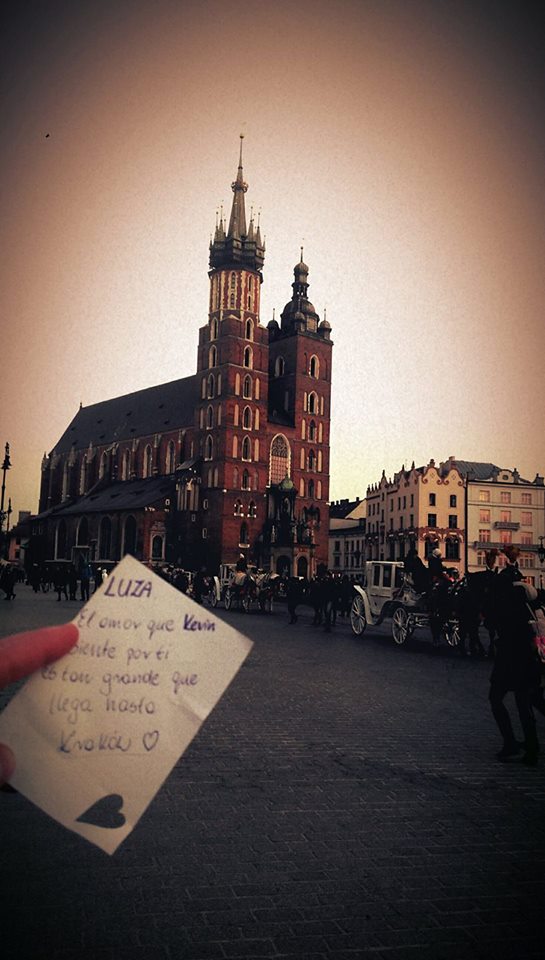 LUZA
El amor que Kevin
siente por ti
es tan grande que
llega hasta
Kraków ♡